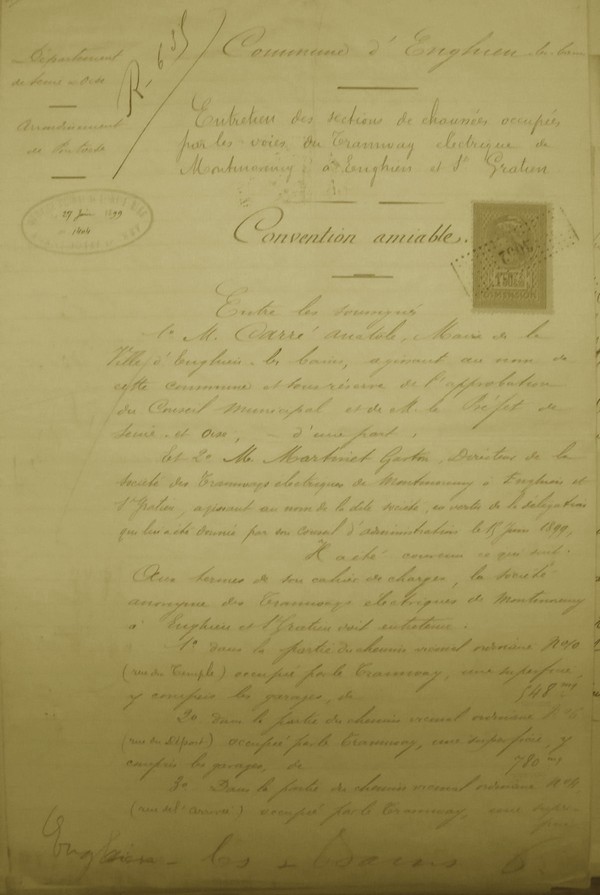 Département
de Seine et Oise
Arrondissement
de Pontoise
R. 635
Commune d'Enghien-les-bains
Entretien des sections de chaussées occupées
par les voies du Tramway électrique de
Montmorency à Enghien et St Gratien
27 Juin 1899
Convention amiable.
Entre les soussignés
1o M. Carré Anatole, Maire de la
Ville d'Enghien-les-bains, agissant au nom de
cette commune et sous réserve de l'approbation
du Conseil municipal et de M. le Préfet de
Seine et Oise, d'une part,
Et 2o M. Martinet Gaston, Directeur de la
Société des Tramways électriques de Montmorency à Enghien et
St Gratien, agissant au nom de la dite société, en vertu de la délégation
qui lui a été donnée par son Conseil d'administration le 15 Juin 1899,
Il a été convenu ce qui suit.
Aux termes de son cahier des charges, la société
anonyme des Tramways électriques de Montmorency
à Enghien et St Gratien doit entretenir.
1o dans la partie du chemin vicinal ordinaire No 10
(rue du Temple) occupée par le Tramway, une superficie,
y compris les garages, de 548 mq
2o dans la partie du chemin vicinal ordinaire
(rue du Départ) occupée par le Tramway, une superficie, y
compris les garages, de 780 mq
3o Dans la partie du chemin vicinal ordinaire No 4
(rue de l'arrivée) occupée par le Tramway, une super-
Enghien-les-Bains